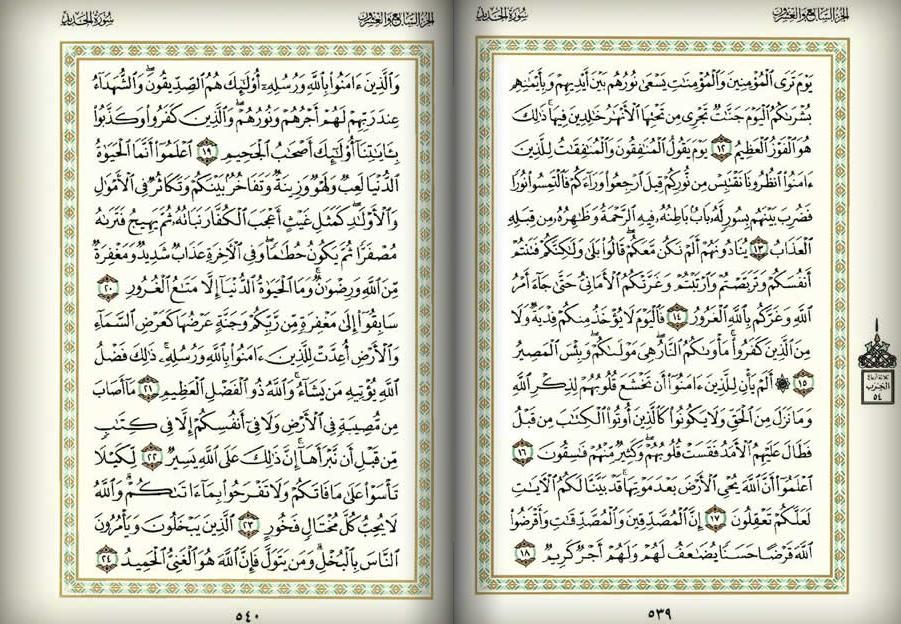 الجزء السابع والعشرون سورة الحديد
يَوْمَ تَرَى ٱلْمُؤْمِنِينَ وَٱلْمُؤْمِنَٰتِ يَسْعَىٰ نُورُهُم بَيْنَ أَيْدِيهِمْ وَبِأَيْمَٰنِهِم
بُشْرَىٰكُمُ ٱلْيَوْمَ جَنَّٰتٌ تَجْرِى مِن تَحْتِهَا ٱلْأَنْهَٰرُ خَٰلِدِينَ فِيهَا ۚ ذَٰلِكَ
هُوَ ٱلْفَوْزُ ٱلْعَظِيمُ ١٢ يَوْمَ يَقُولُ ٱلْمُنَٰفِقُونَ وَٱلْمُنَٰفِقَٰتُ لِلَّذِينَ
ءَامَنُوا۟ ٱنظُرُونَا نَقْتَبِسْ مِن نُّورِكُمْ قِيلَ ٱرْجِعُوا۟ وَرَآءَكُمْ فَٱلْتَمِسُوا۟ نُورًا
فَضُرِبَ بَيْنَهُم بِسُورٍ لَّهُۥ بَابٌۢ بَاطِنُهُۥ فِيهِ ٱلرَّحْمَةُ وَظَٰهِرُهُۥ مِن قِبَلِهِ
ٱلْعَذَابُ ١٣ يُنَادُونَهُمْ أَلَمْ نَكُن مَّعَكُمْ ۖ قَالُوا۟ بَلَىٰ وَلَٰكِنَّكُمْ فَتَنتُمْ
أَنفُسَكُمْ وَتَرَبَّصْتُمْ وَٱرْتَبْتُمْ وَغَرَّتْكُمُ ٱلْأَمَانِىُّ حَتَّىٰ جَآءَ أَمْرُ
ٱللَّهِ وَغَرَّكُم بِٱللَّهِ ٱلْغَرُورُ ١٤ فَٱلْيَوْمَ لَا يُؤْخَذُ مِنكُمْ فِدْيَةٌ وَلَا
مِنَ ٱلَّذِينَ كَفَرُوا۟ ۚ مَأْوَىٰكُمُ ٱلنَّارُ ۖ هِىَ مَوْلَىٰكُمْ ۖ وَبِئْسَ ٱلْمَصِيرُ
١٥ ۞ أَلَمْ يَأْنِ لِلَّذِينَ ءَامَنُوٓا۟ أَن تَخْشَعَ قُلُوبُهُمْ لِذِكْرِ ٱللَّهِ
وَمَا نَزَلَ مِنَ ٱلْحَقِّ وَلَا يَكُونُوا۟ كَٱلَّذِينَ أُوتُوا۟ ٱلْكِتَٰبَ مِن قَبْلُ
فَطَالَ عَلَيْهِمُ ٱلْأَمَدُ فَقَسَتْ قُلُوبُهُمْ ۖ وَكَثِيرٌ مِّنْهُمْ فَٰسِقُونَ ١٦
ٱعْلَمُوٓا۟ أَنَّ ٱللَّهَ يُحْىِ ٱلْأَرْضَ بَعْدَ مَوْتِهَا ۚ قَدْ بَيَّنَّا لَكُمُ ٱلْءَايَٰتِ
لَعَلَّكُمْ تَعْقِلُونَ ١٧ إِنَّ ٱلْمُصَّدِّقِينَ وَٱلْمُصَّدِّقَٰتِ وَأَقْرَضُوا۟
ٱللَّهَ قَرْضًا حَسَنًا يُضَٰعَفُ لَهُمْ وَلَهُمْ أَجْرٌ كَرِيمٌ ١٨
٥٣٩
ثلاثة أرباع
الحزب
٥٤
الجزء السابع والعشرون سورة الحديد
وَٱلَّذِينَ ءَامَنُوا۟ بِٱللَّهِ وَرُسُلِهِۦٓ أُو۟لَٰٓئِكَ هُمُ ٱلصِّدِّيقُونَ ۖ وَٱلشُّهَدَآءُ
عِندَ رَبِّهِمْ لَهُمْ أَجْرُهُمْ وَنُورُهُمْ ۖ وَٱلَّذِينَ كَفَرُوا۟ وَكَذَّبُوا۟
بِـَٔايَٰتِنَآ أُو۟لَٰٓئِكَ أَصْحَٰبُ ٱلْجَحِيمِ ١٩ ٱعْلَمُوٓا۟ أَنَّمَا ٱلْحَيَوٰةُ
ٱلدُّنْيَا لَعِبٌ وَلَهْوٌ وَزِينَةٌ وَتَفَاخُرٌۢ بَيْنَكُمْ وَتَكَاثُرٌ فِى ٱلْأَمْوَٰلِ
وَٱلْأَوْلَٰدِ ۖ كَمَثَلِ غَيْثٍ أَعْجَبَ ٱلْكُفَّارَ نَبَاتُهُۥ ثُمَّ يَهِيجُ فَتَرَىٰهُ
مُصْفَرًّا ثُمَّ يَكُونُ حُطَٰمًا ۖ وَفِى ٱلْءَاخِرَةِ عَذَابٌ شَدِيدٌ وَمَغْفِرَةٌ
مِّنَ ٱللَّهِ وَرِضْوَٰنٌ ۚ وَمَا ٱلْحَيَوٰةُ ٱلدُّنْيَآ إِلَّا مَتَٰعُ ٱلْغُرُورِ ٢٠
سَابِقُوٓا۟ إِلَىٰ مَغْفِرَةٍ مِّن رَّبِّكُمْ وَجَنَّةٍ عَرْضُهَا كَعَرْضِ ٱلسَّمَآءِ
وَٱلْأَرْضِ أُعِدَّتْ لِلَّذِينَ ءَامَنُوا۟ بِٱللَّهِ وَرُسُلِهِۦ ۚ ذَٰلِكَ فَضْلُ
ٱللَّهِ يُؤْتِيهِ مَن يَشَآءُ ۚ وَٱللَّهُ ذُو ٱلْفَضْلِ ٱلْعَظِيمِ ٢١ مَآ أَصَابَ
مِن مُّصِيبَةٍ فِى ٱلْأَرْضِ وَلَا فِىٓ أَنفُسِكُمْ إِلَّا فِى كِتَٰبٍ
مِّن قَبْلِ أَن نَّبْرَأَهَآ ۚ إِنَّ ذَٰلِكَ عَلَى ٱللَّهِ يَسِيرٌ ٢٢ لِّكَيْلَا
تَأْسَوْا۟ عَلَىٰ مَا فَاتَكُمْ وَلَا تَفْرَحُوا۟ بِمَآ ءَاتَىٰكُمْ ۗ وَٱللَّهُ
لَا يُحِبُّ كُلَّ مُخْتَالٍ فَخُورٍ ٢٣ ٱلَّذِينَ يَبْخَلُونَ وَيَأْمُرُونَ
ٱلنَّاسَ بِٱلْبُخْلِ ۗ وَمَن يَتَوَلَّ فَإِنَّ ٱللَّهَ هُوَ ٱلْغَنِىُّ ٱلْحَمِيدُ ٢٤
٥٤٠